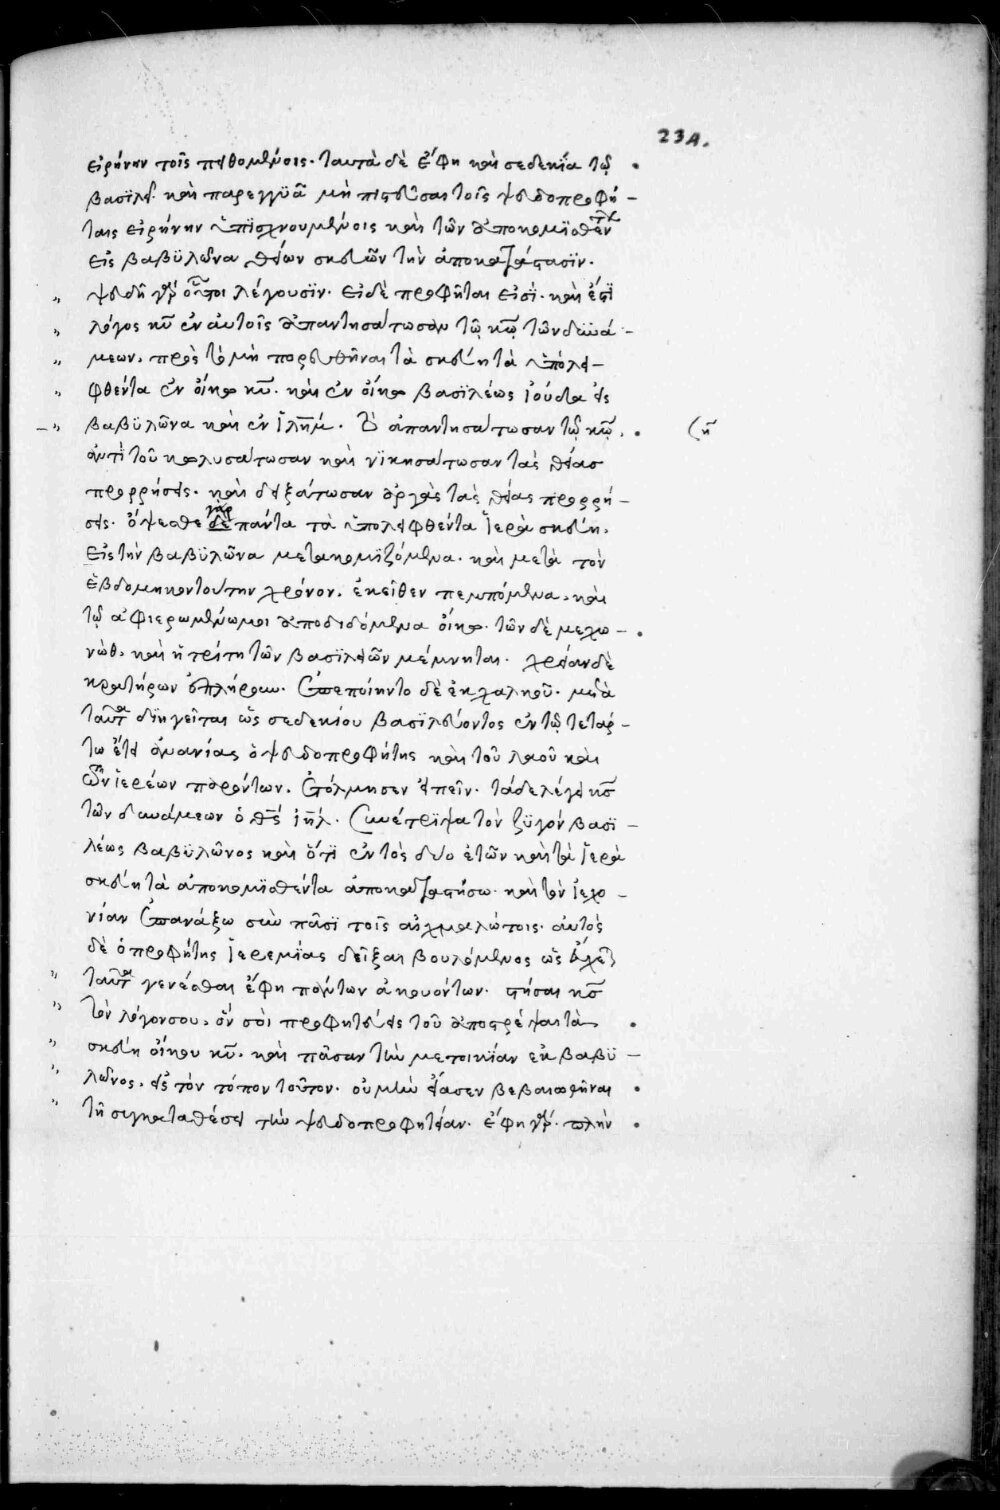 234.
εἰρήνην τοῖς πειθομένοις. ταυτὰ δὲ ἔφη καὶ σεδεκία τῷ
βασιλεῖ. καὶ παρεγγυᾶ μὴ πιστεῦσαι τοῖς ψευδοπροφή –
ταις εἰρήνην ὑπισχνουμένοις καὶ τῶν ἀποκομισθέντων
εἰς βαβυλῶνα θείων σκευῶν τὴν ἀποκατάστασιν.
„ ψευδῆ γὰρ οὗτοι λέγουσιν. εἰ δὲ προφῆται εἰσὶ. καὶ ἔστι
„ λόγος κυ ἐν αὐτοῖς ἀπαντησάτωσαν τῷ κω τῶν δυνά –
„ μεων. πρὸς τὸ μὴ πορευθῆναι τὰ σκεύη τὰ ὑπολει –
„ φθέντα ἐν οἴκω κυ. καὶ ἐν οἴκω βασιλέως ἰούδα εἰς
„ βαβυλῶνα καὶ ἐν ἱλημ. τὸ ἀπαντησάτωσαν τῷ κω.
ἀντὶ τοῦ κωλυσάτωσαν καὶ νικησάτωσαν τὰς θείας
προρρήσεις. καὶ δειξάτωσαν ἀργὰς τὰς θείας προρρή –
σεις. ὄψεσθε δὲ γὰρ πάντα τὰ ὑπολειφθέντα ἱερὰ σκεύη.
εἰς τὴν βαβυλῶνα μετακομιζόμενα. καὶ μετὰ τὸν
ἑβδομηκοντούτην χρόνον. ἐκεῖθεν πεμπόμενα. καὶ
τῷ ἀφιερωμένω μοι ἀποδιδόμενα οἴκω. τῶν δὲ μεχω –
νώθ. καὶ ἡ τρίτη τῶν βασιλειῶν μέμνηται. χρείαν δὲ
κρατήρων ἐπλήρουν. ἐπεποίηντο δὲ ἐκ χαλκοῦ. μετὰ
ταῦτα διηγεῖται ὡς σεδεκίου βασιλεύοντος ἐν τῷ τετάρ –
τω ἔτει ἀνανίας ὁ ψευδοπροφήτης καὶ τοῦ λαοῦ καὶ
τῶν ἱερέων παρόντων. ἐτόλμησεν εἰπεῖν. τάδε λέγει κς
τῶν δυνάμεων ὁ θς ἰηλ. συνέτριψα τὸν ζυγὸν βασι –
λέως βαβυλῶνος καὶ ὅτι ἐντὸς δύο ἐτῶν καὶ τὰ ἱερὰ
σκεύη τὰ ἀποκομισθέντα ἀποκαταστήσω. καὶ τὸν ἰεχο –
νίαν ἐπανάξω σὺν πᾶσι τοῖς αἰχμαλώτοις. αὐτὸς
δὲ ὁ προφήτης ἱερεμίας δεῖξαι βουλόμενος ὡς
„ ταῦτα γενέσθαι ἔφη πάντων ἀκουόντων. στήσαι κς
„ τὸν λόγον σου. ὃν σὺ προφητεύεις τοῦ ἀποστρέψαι τὰ
„ σκεύη οἴκου κυ. καὶ πᾶσαν τὴν μετοικίαν ἐκ βαβυ –
„ λῶνος. εἰς τὸν τόπον τοῦτον. οὐ μὴν εἴασεν βεβαιωθῆναι
„ τῆ συγκαταθέσει τὴν ψευδοπροφητείαν. ἔφη γάρ. πλὴν